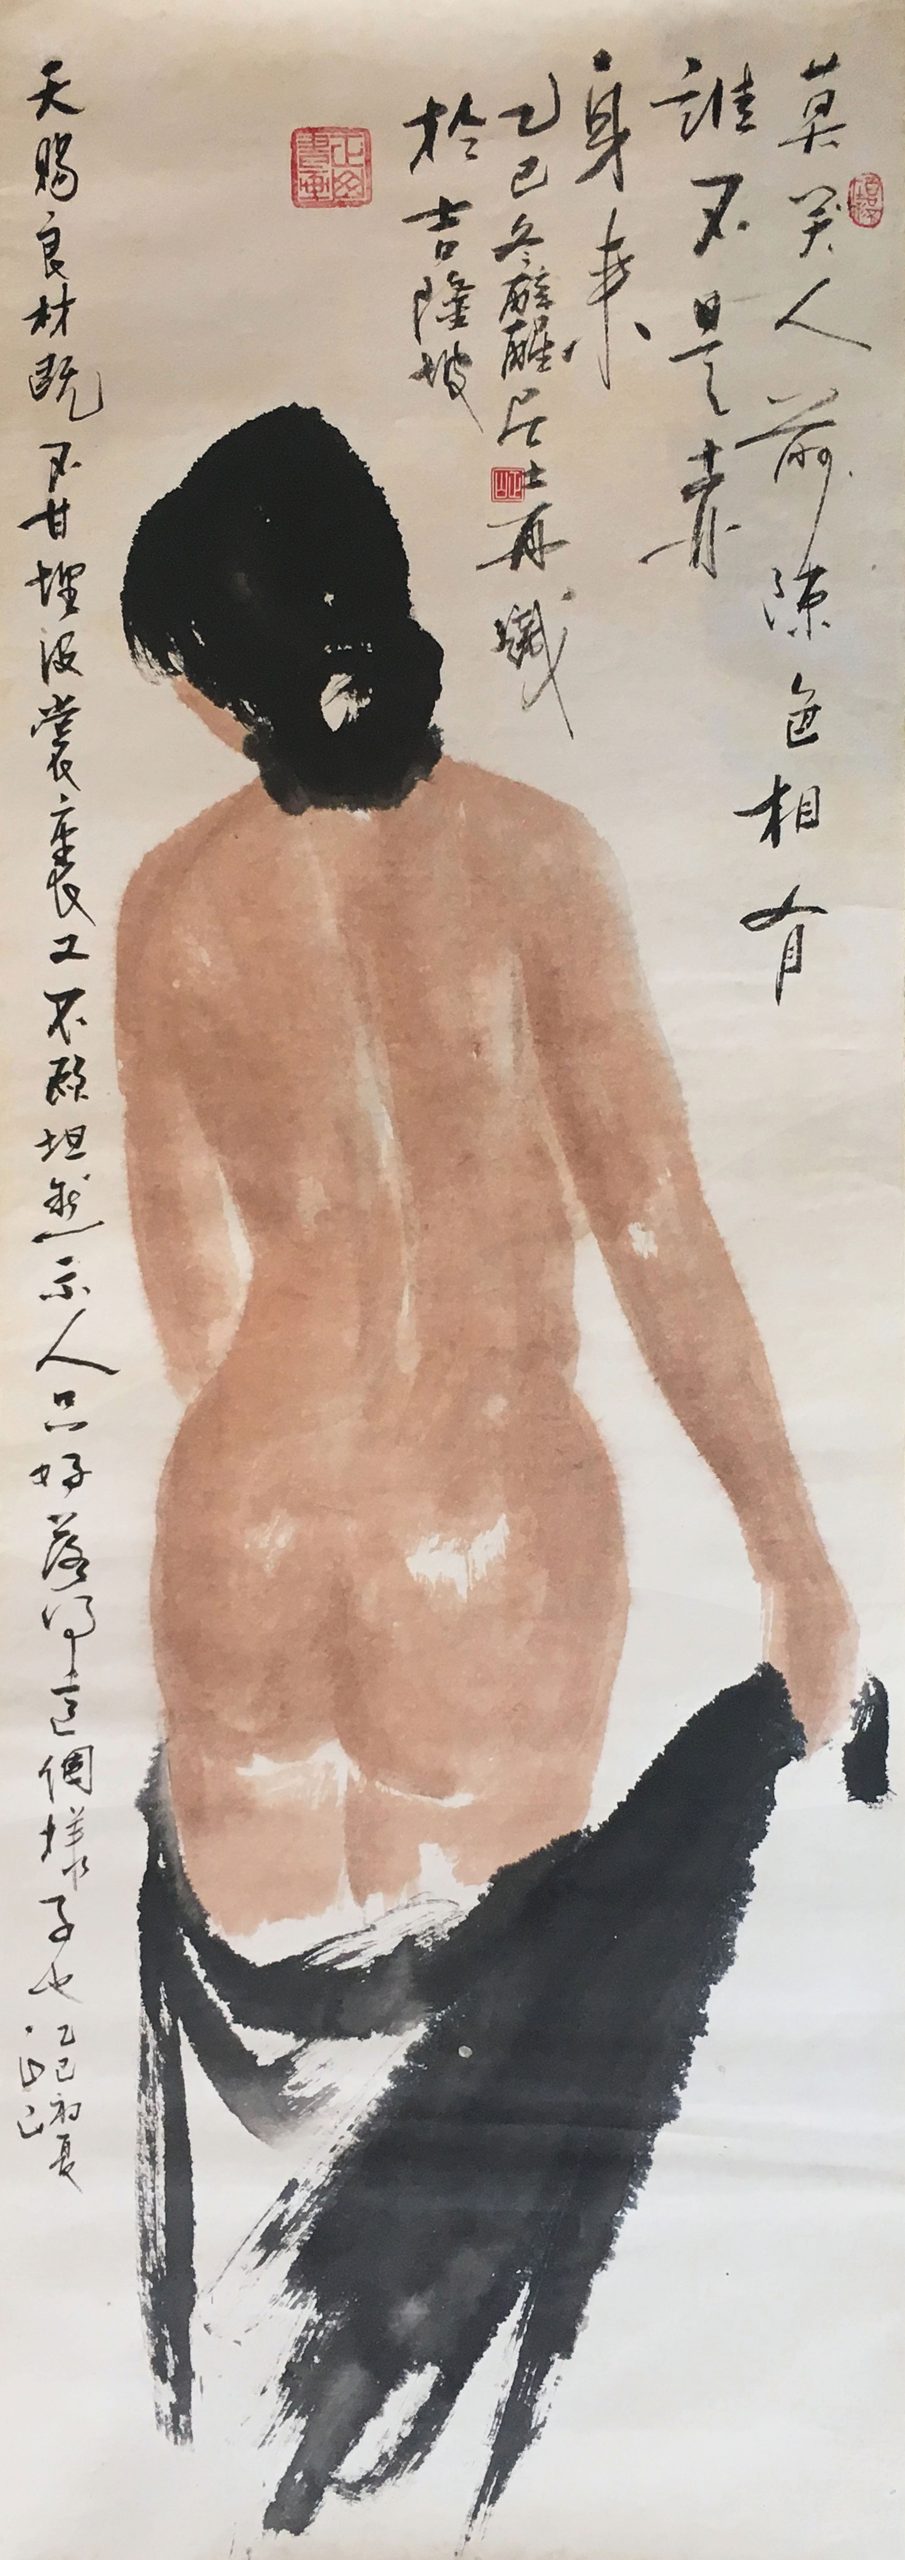 莫笑人前陳色相有
誰不是赤
身來
乙巳冬醉醒居士再識
於吉隆坡
天賜良材既不甘埋沒裳裏又不願坦然示人只好落得這個樣子也
乙巳初夏